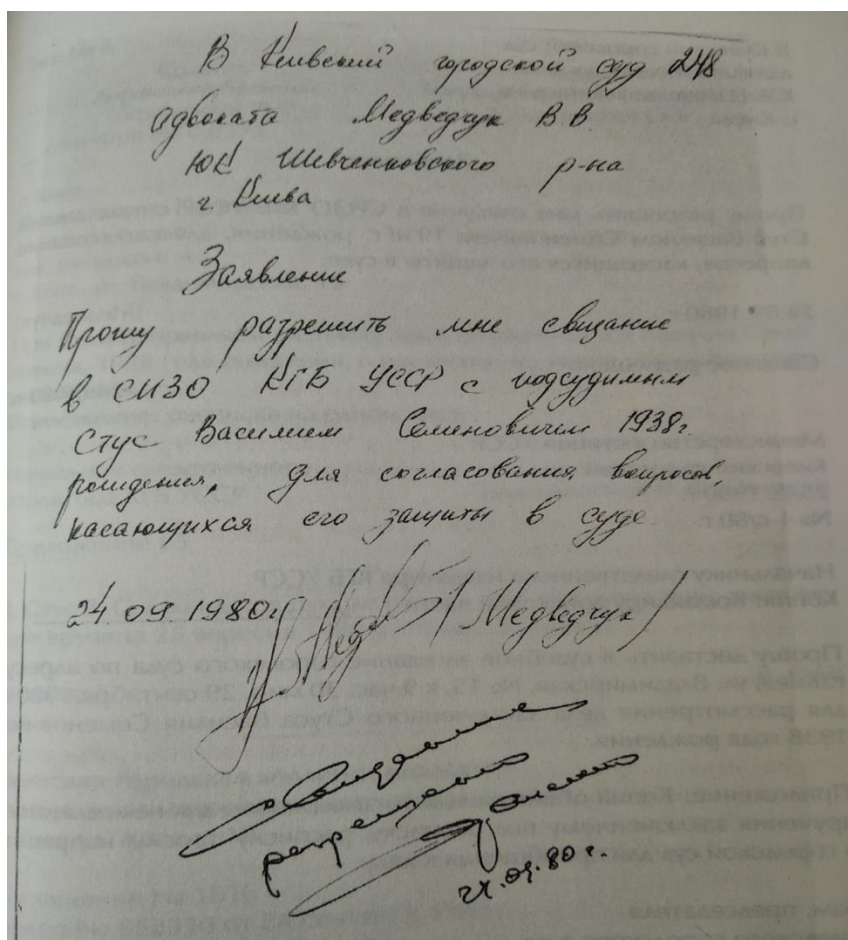 В Киевский городской суд 248
адвоката Медведчук В.В.
ЮК Шевченковского р-на
г. Киева
Заявление
Прошу разрешить мне свидание
в СИЗО КГБ УССР с подсудимым
Стус Василием Семеновичем 1938г.
рождения, для согласования вопросов,
касающихся его защиты в суде
24.09.1980г. /Медведчук/
Свидание
разрешено
24.09.80г.